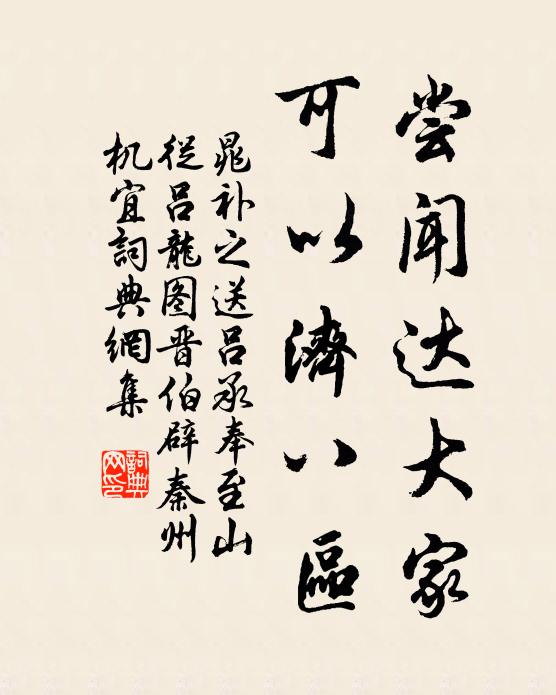 尝闻达大家
可以濟八區
晁补之送吕承奉至山
從吕龍图晋伯辟秦州
机宜詞典網集
詞典网印